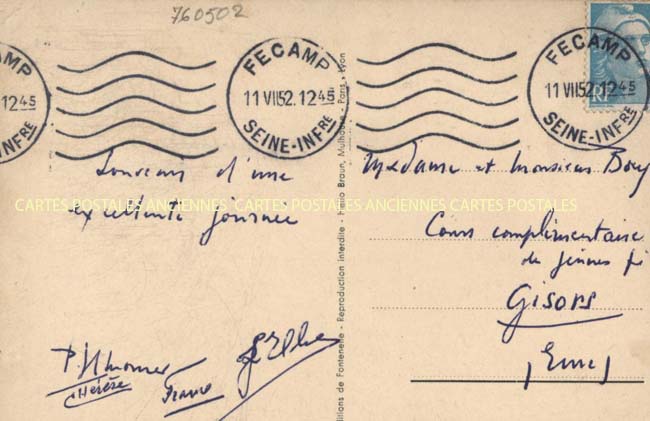 760502
FECAMP
12 45
SEINE-INFRE
FECAMP
11 VII52.12 45
SEINE-INFRE
FECAMP
11 VII52.12 45
SEINE-INFRE
RF
Souvenir d'une
excellente journée
CARTES POSTALES ANCIENNES CARTES POSTALES ANCIENNES CARTES POSTALES
France
Editions de Fontenelle - Reproduction interdite - Hélio Braun, Mulhouse - Paris - Lyon
Madame et Monsieur
Cours complémentaire
de jeunes fi
Gisors
(Eure)